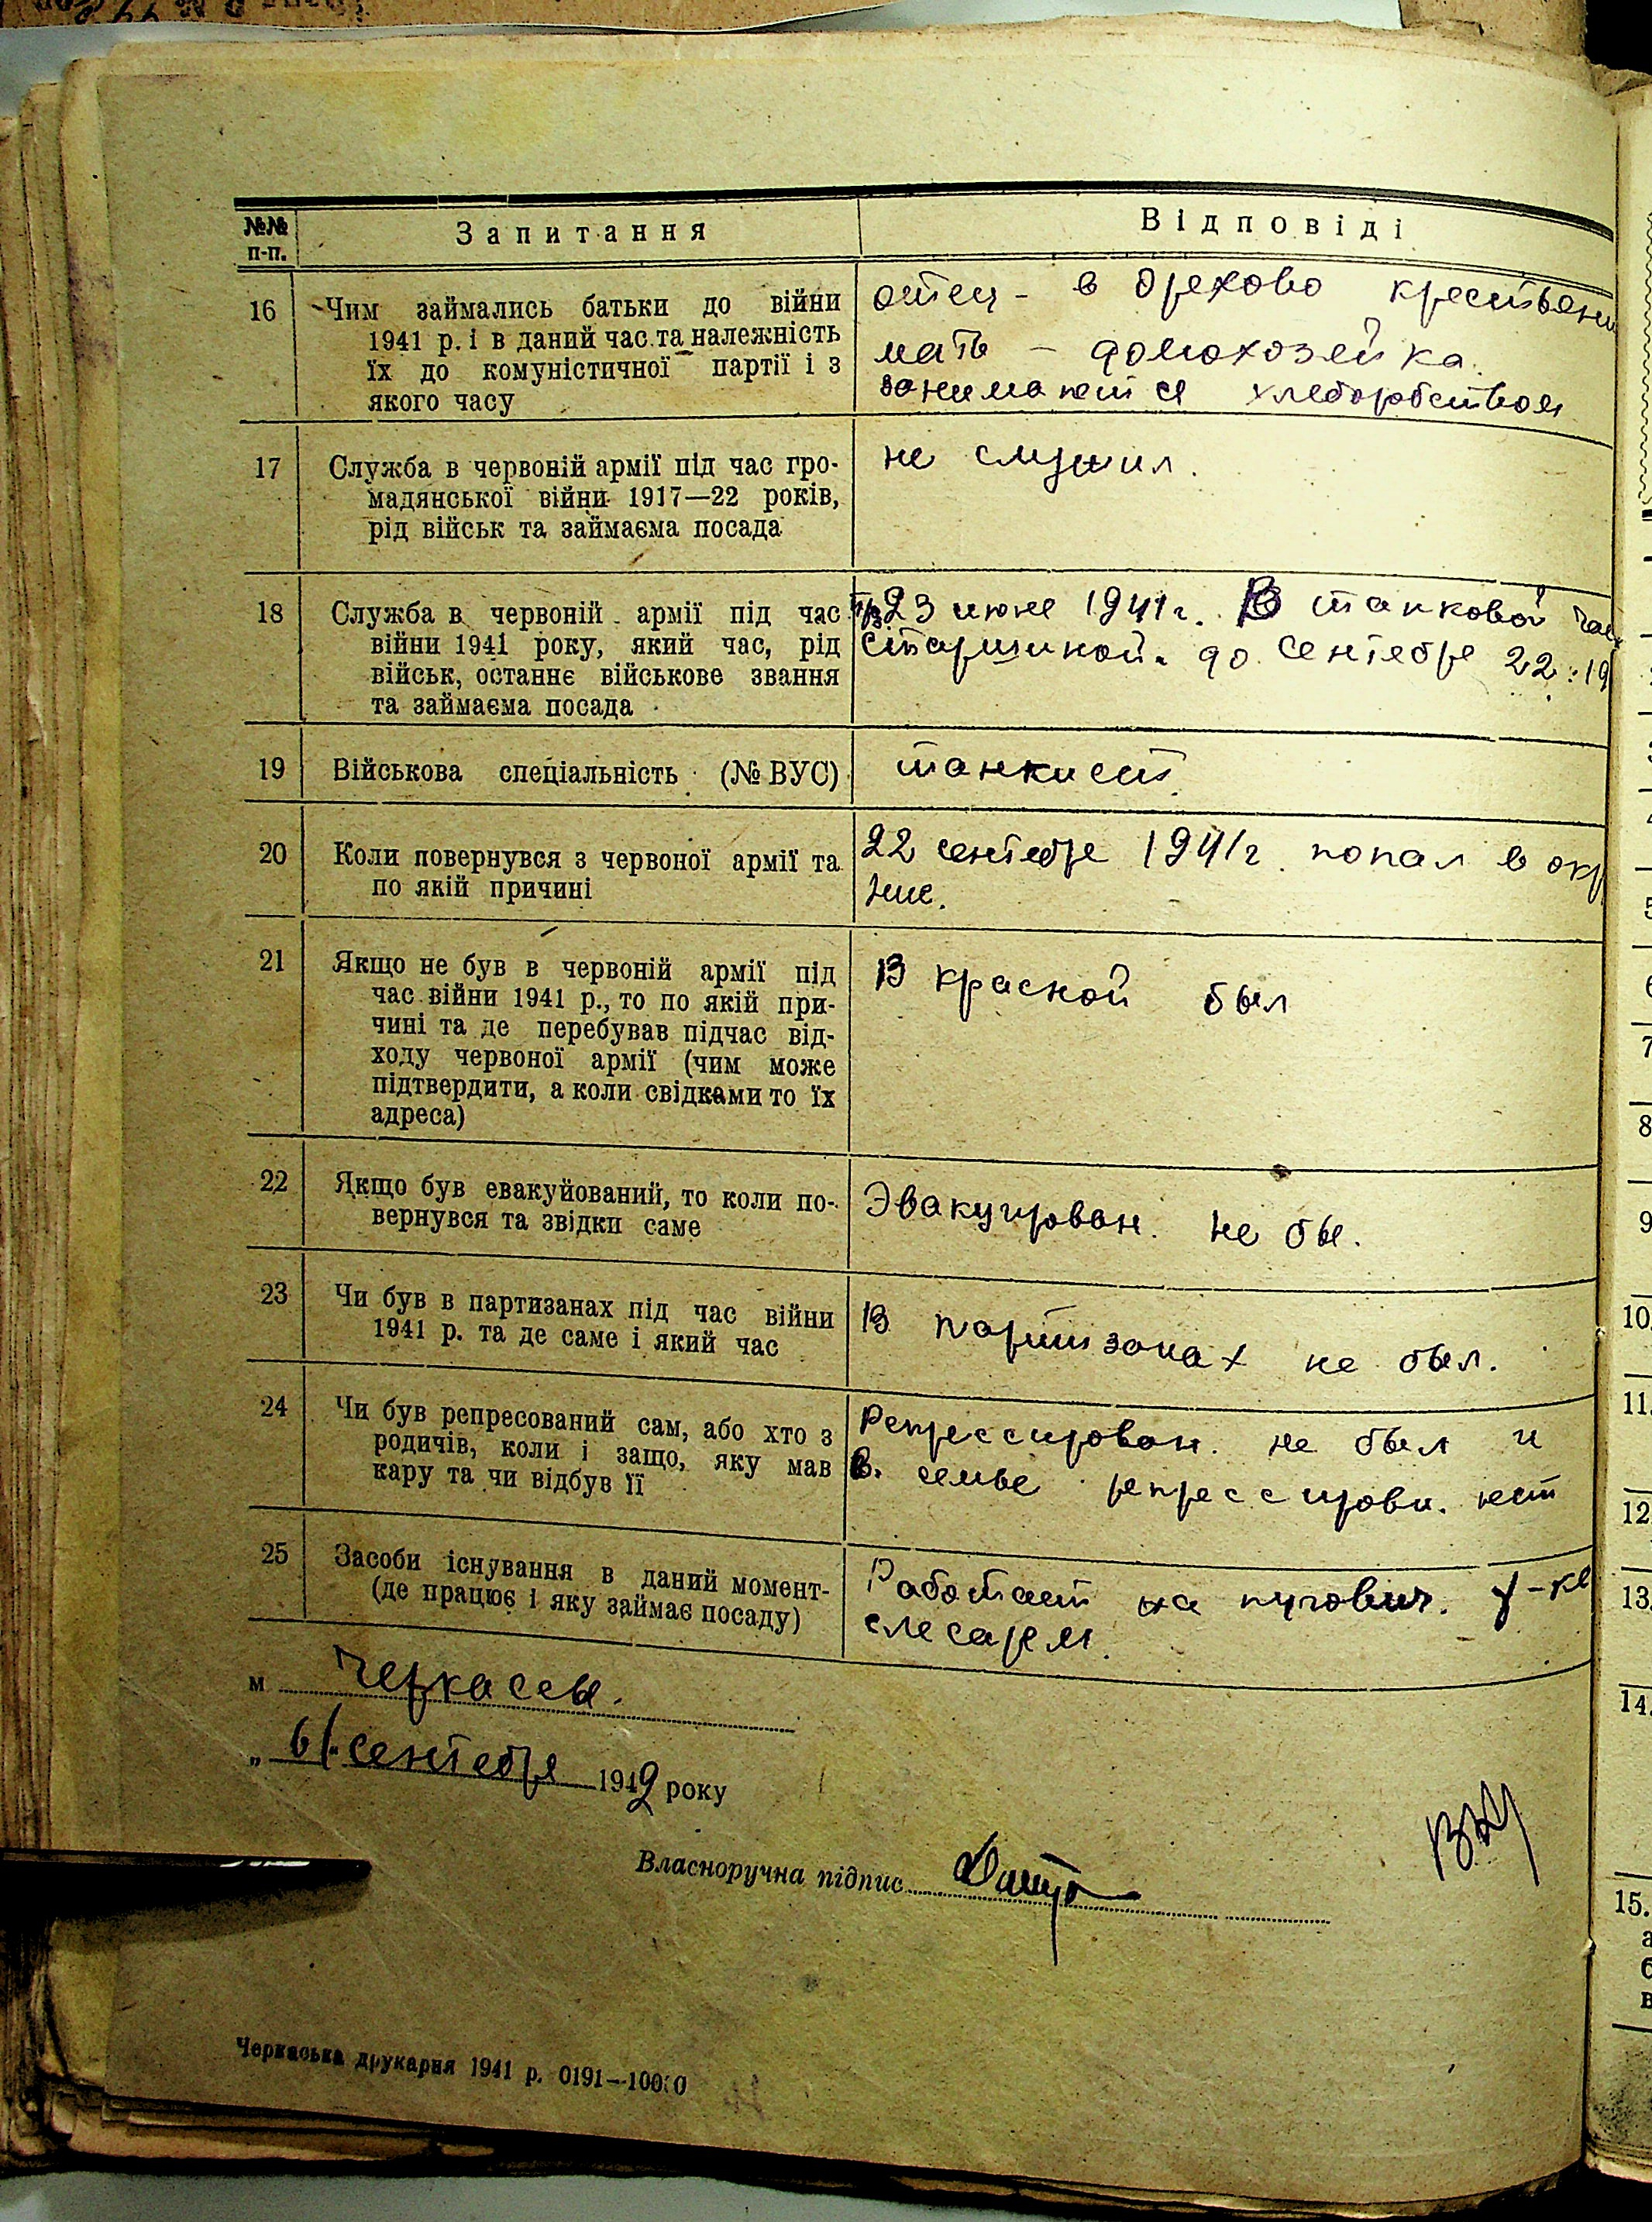 №№ п-п. Запитання Відповіді
16 Чим займались батьки до війни
1941 р. і в даний час та належність
їх до комуністичної партії і з
якого часу
отец - в Орехово крестьяни
мать - домохозейка.
занимается хлеборобством
17 Служба в червоній армії під час гро-
мадянської війни 1917—22 років,
рід військ та займаєма посада
не служил.
18 Служба в червоній армії під час
війни 1941 року, який час, рід
військ, останнє військове звання
та займаєма посада
23 июне 1941 г. В танковой час
старшиной. до сентебре 22. 19
19 Військова спеціальність (№ ВУС)
танкист.
20 Коли повернувся з червоної армії та
по якій причині
22 сентебре 1941 г. попал в окр
жие.
21 Якщо не був в червоній армії під
час війни 1941 р., то по якій при-
чині та де перебував підчас від-
ходу червоної армії (чим може
підтвердити, а коли свідками то їх
адреса)
В красной был
22 Якщо був евакуйований, то коли по-
вернувся та звідки саме
Эвакуирован. не бы.
23 Чи був в партизанах під час війни
1941 р. та де саме і який час
В партизанах не был.
24 Чи був репресований сам, або хто з
родичів, коли і защо, яку мав
кару та чи відбув її
Репрессирован. не был и
в. семье репрессирован. нет
25 Засоби існування в даний момент-
(де працює і яку займає посаду)
Работает на пугович. ф-ке
слесарем.
м Черкассы.
„ 6/. сентебре 1942 року
Власноручна підпис
Черкаська друкарня 1941 р. 0191—10000
5
6
7
8
9
10.
11.
12
13.
14.
15.
а
б
в